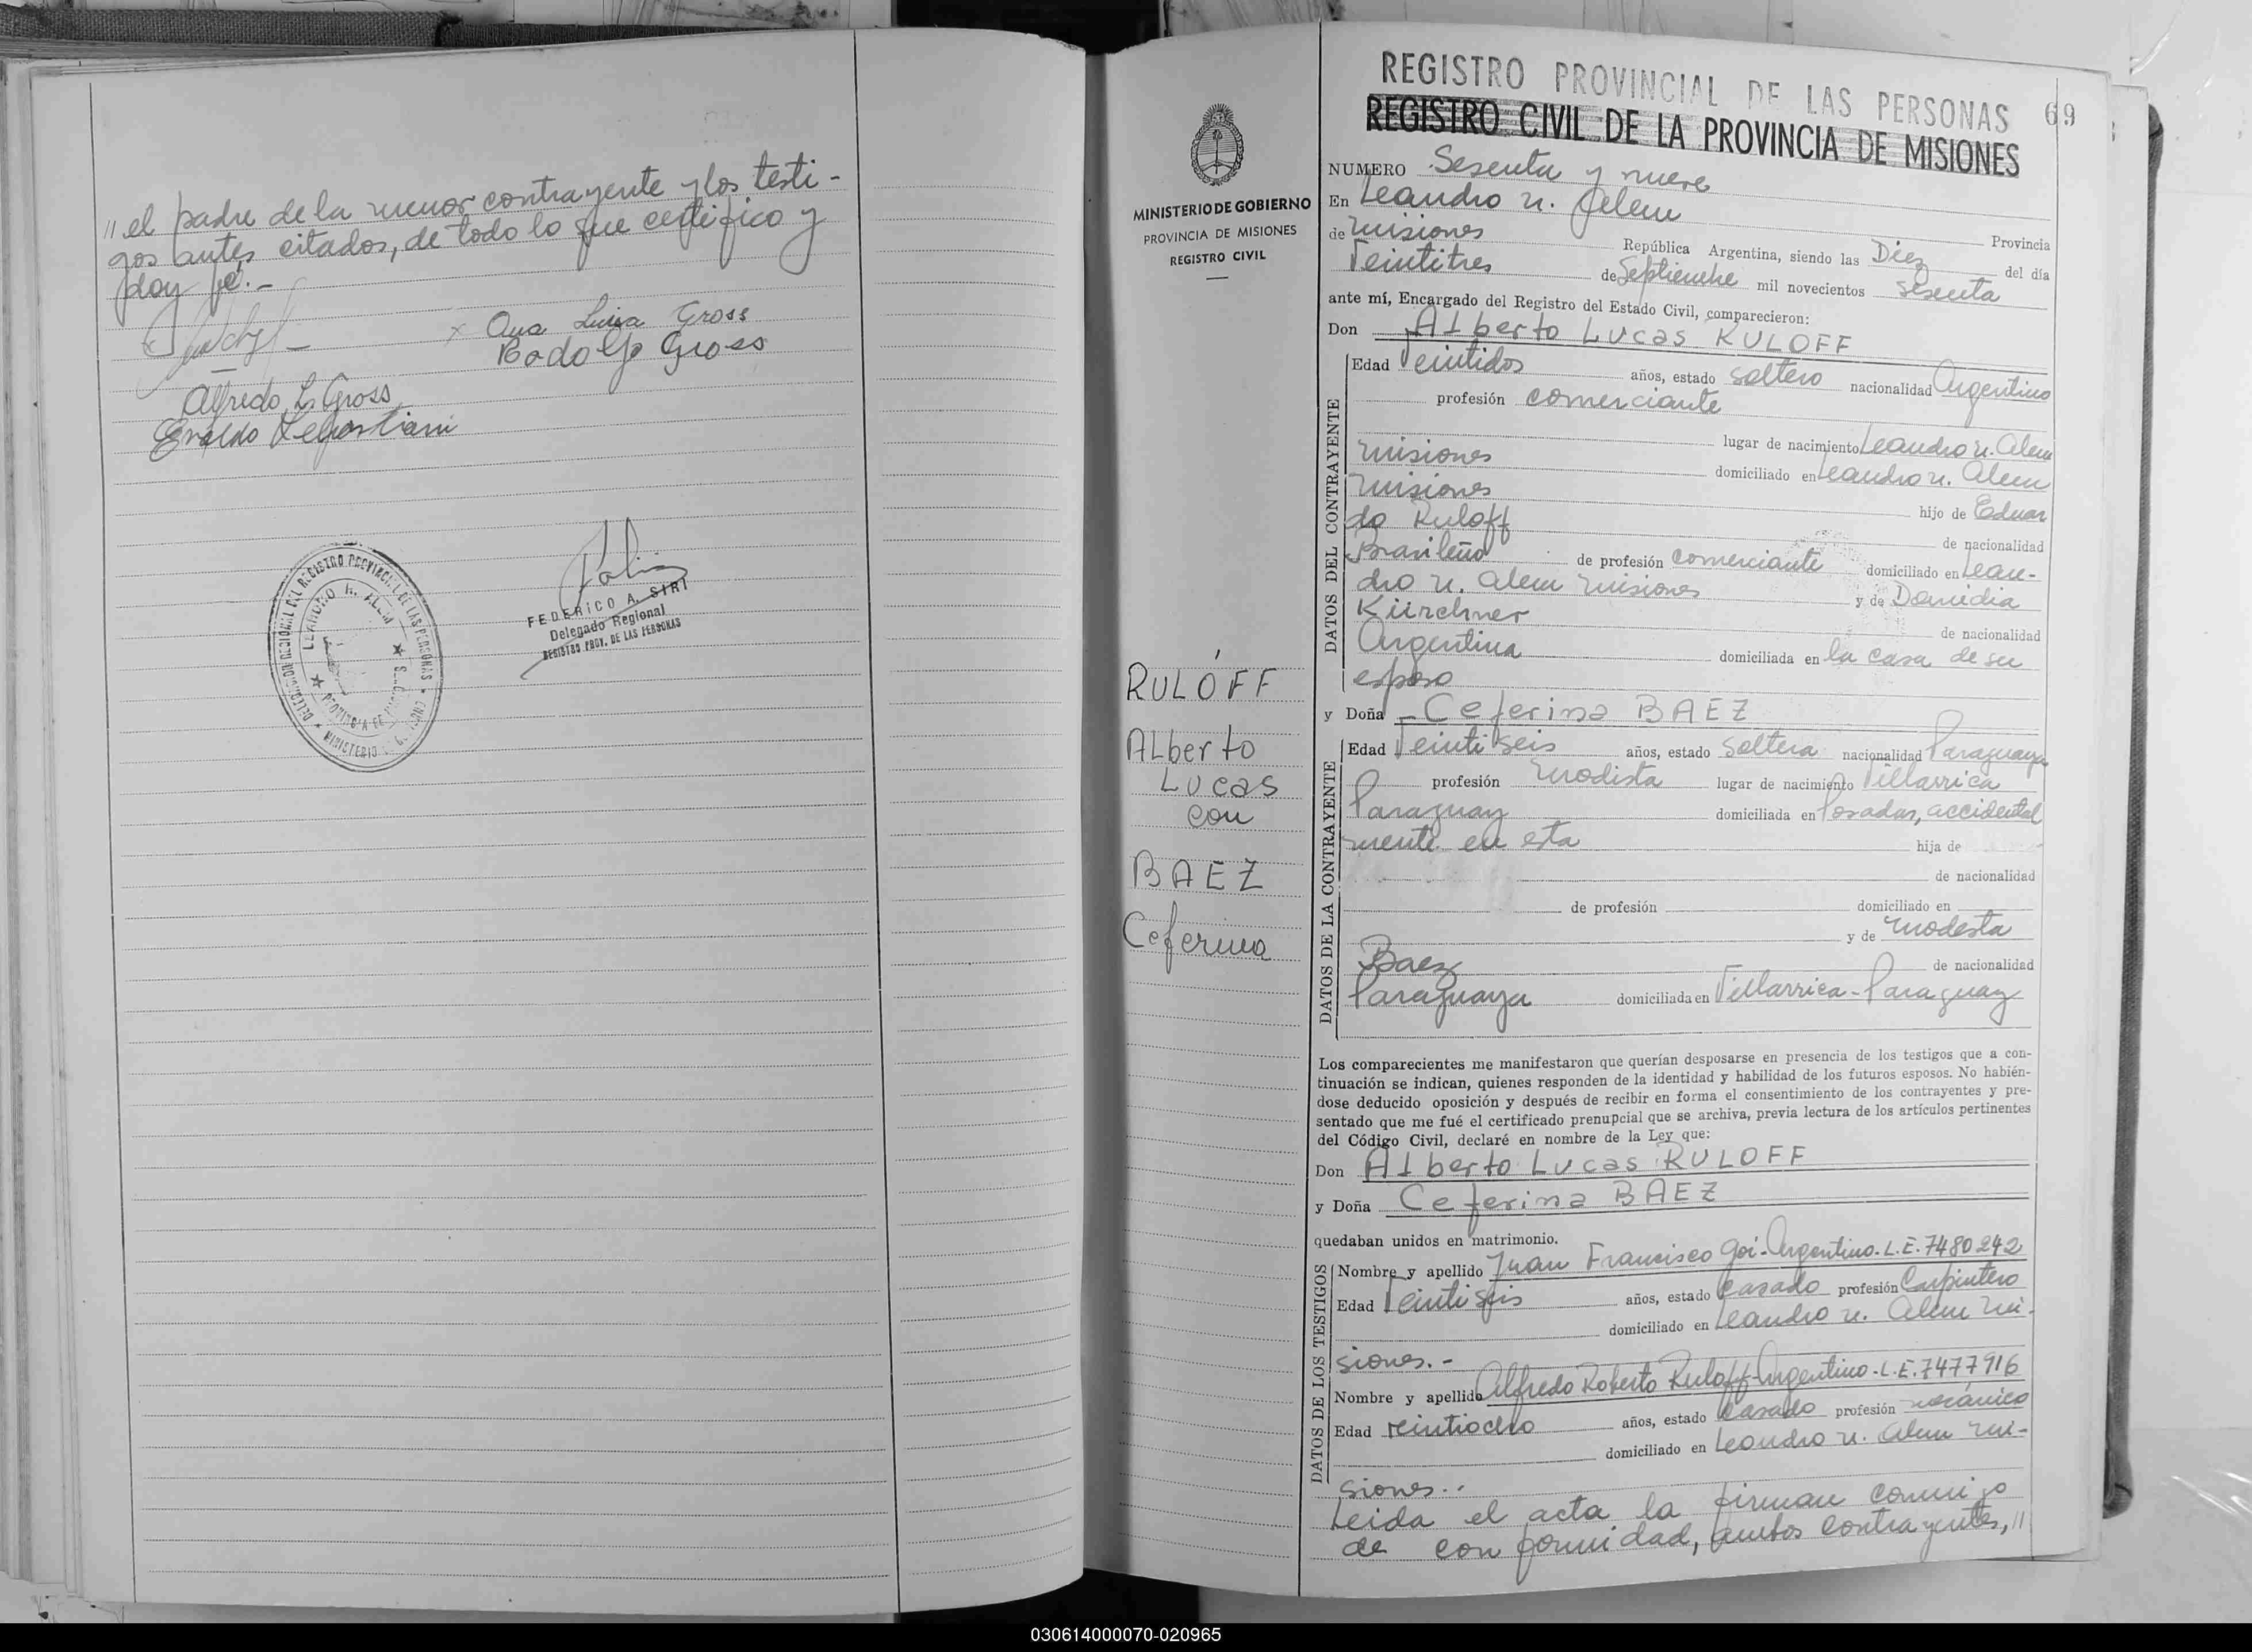 // el padre de la menor contrayente y los testi-
gos antes citados, de todo lo que certifico y
doy fé.-
x Ana Luisa Gross
Rodolfo Gross
Alfredo L. Gross
Evaldo Sebastiani
DELEGACION REGIONAL DEL REGISTRO PROVINCIAL DE LAS PERSONAS
LEANDRO N. ALEM
PROVINCIA DE MISIONES
MINISTERIO
FEDERICO A. SIRI
Delegado Regional
REGISTRO PROV. DE LAS PERSONAS
MINISTERIO DE GOBIERNO
PROVINCIA DE MISIONES
REGISTRO CIVIL
RULOFF
Alberto
Lucas
con
BAEZ
Ceferina
REGISTRO PROVINCIAL DE LAS PERSONAS 69
REGISTRO CIVIL DE LA PROVINCIA DE MISIONES
NUMERO Sesenta y nueve
En Leandro N. Alem
Provincia
de Misiones República Argentina, siendo las Diez del día
Veintitres de Septiembre mil novecientos sesenta
ante mí, Encargado del Registro del Estado Civil, comparecieron:
Don Alberto Lucas RULOFF
DATOS DEL CONTRAYENTE
Edad Veintidos años, estado soltero nacionalidad Argentino
profesión comerciante
lugar de nacimiento Leandro N. Alem
Misiones domiciliado en Leandro N. Alem
Misiones hijo de Eduar
do Ruloff de nacionalidad
Brasileño de profesión comerciante domiciliado en Lean-
dro N. Alem Misiones y de Domidia
Kürchner de nacionalidad
Argentina domiciliada en la casa de su
esposo
y Doña Ceferina BAEZ
DATOS DE LA CONTRAYENTE
Edad Veintiseis años, estado soltera nacionalidad Paraguaya
profesión modista lugar de nacimiento Villarrica
Paraguay domiciliada en Posadas, accidental
mente en esta hija de
de nacionalidad
de profesión domiciliado en
y de Modesta
Baez de nacionalidad
Paraguaya domiciliada en Villarrica-Paraguay
Los comparecientes me manifestaron que querían desposarse en presencia de los testigos que a con-
tinuación se indican, quienes responden de la identidad y habilidad de los futuros esposos. No habién-
dose deducido oposición y después de recibir en forma el consentimiento de los contrayentes y pre-
sentado que me fué el certificado prenupcial que se archiva, previa lectura de los artículos pertinentes
del Código Civil, declaré en nombre de la Ley que:
Don Alberto Lucas RULOFF
y Doña Ceferina BAEZ
quedaban unidos en matrimonio.
DATOS DE LOS TESTIGOS
Nombre y apellido Juan Francisco Goi-Argentino-L.E.7480242
Edad Veintiseis años, estado casado profesión Carpintero
domiciliado en Leandro N. Alem Mi-
siones.-
Nombre y apellido Alfredo Roberto Ruloff-Argentino-L.E.7477916
Edad veintiocho años, estado casado profesión mecánico
domiciliado en Leandro N. Alem Mi-
siones.-
Leida el acta la firman conmigo
de conformidad, ambos contrayentes, //
030614000070-020965